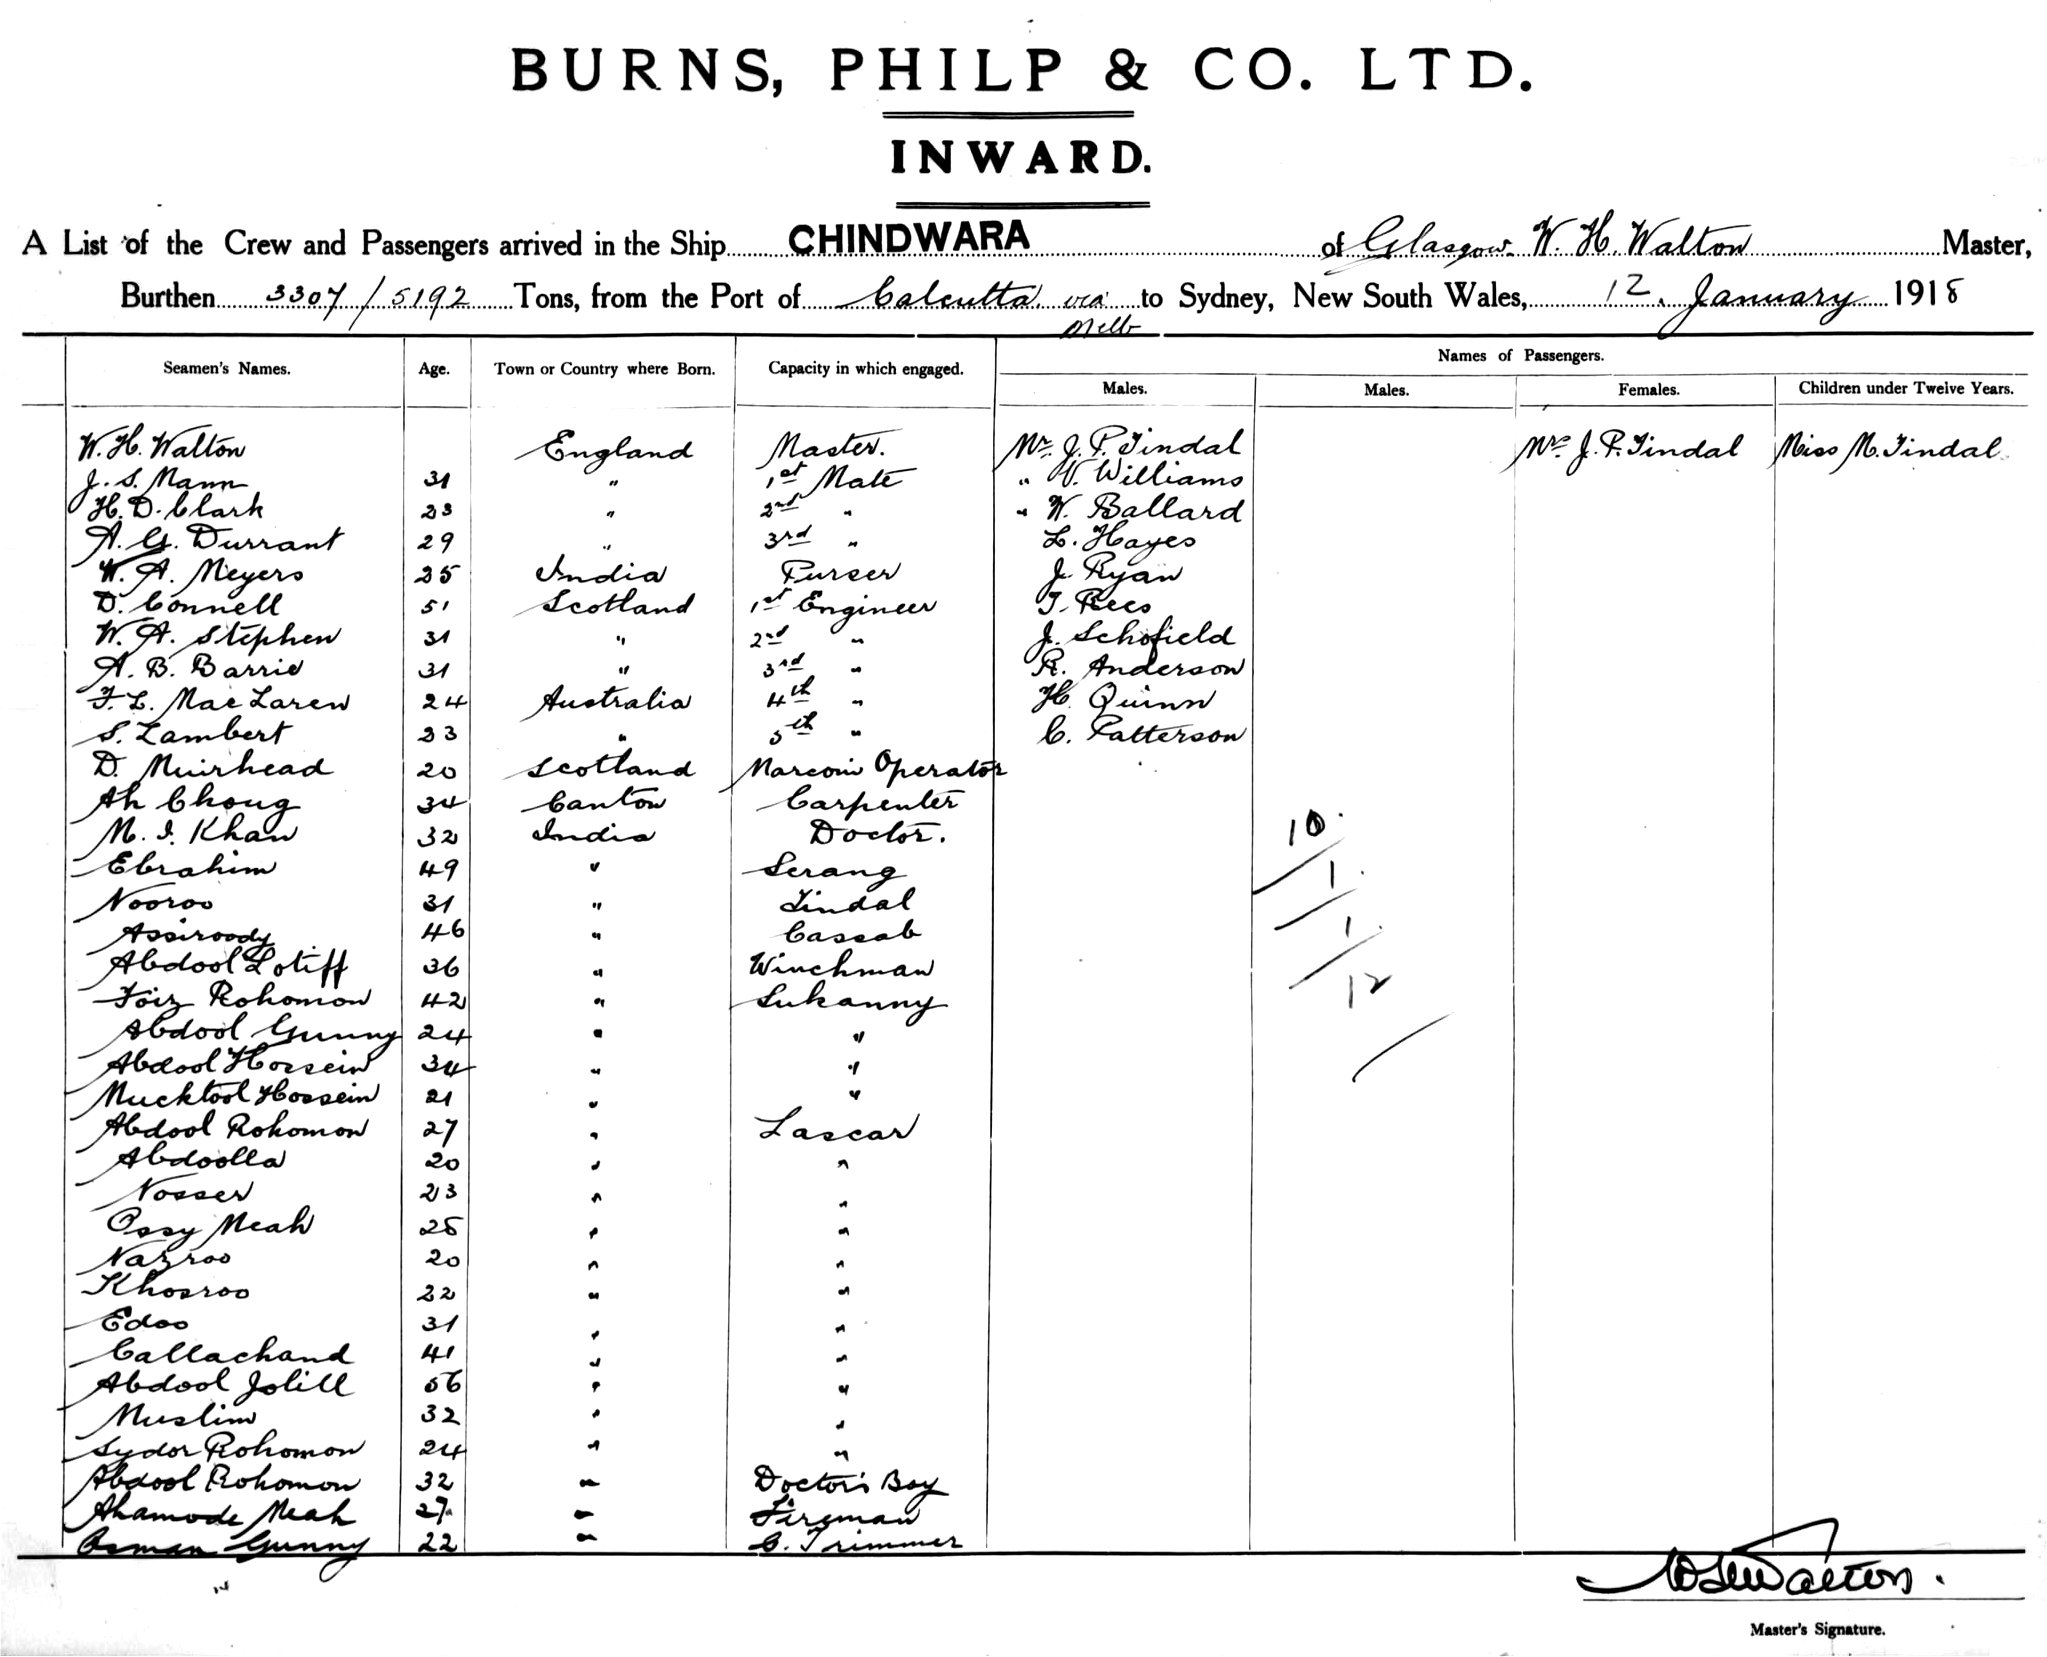 BURNS, PHILP & CO. LTD.
INWARD.
A List of the Crew and Passengers arrived in the Ship CHINDWARA of Glasgow. W. H. Walton Master,
Burthen 3307/5192 Tons, from the Port of Calcutta via Melb to Sydney, New South Wales, 12. January 1918
Names of Passengers.
Seamen's Names. Age. Town or Country where Born. Capacity in which engaged. Males. Males. Females. Children under Twelve Years.
W. H. Walton England Master. Mr. J. P. Tindal Mrs J. P. Tindal Miss M. Tindal
J. S. Mann 31 " 1st Mate " V. Williams
H. D. Clark 23 " 2nd " " W. Ballard
A. G. Durrant 29 " 3rd " L. Hayes
W. A. Meyers 25 India Purser J. Ryan
D. Connell 51 Scotland 1st Engineer T. Rees
W. A. Stephen 31 " 2nd " J. Schofield
A. B. Barrie 31 " 3rd " R. Anderson
F. L. MacLaren 24 Australia 4th " H. Quinn
S. Lambert 23 " 5th " C. Patterson
D. Muirhead 20 Scotland Marconi Operator
Ah Choug 34 Canton Carpenter 10.
M. I. Khan 32 India Doctor.
Ebrahim 49 " Serang 1.
Nooroo 31 " Tindal
Assiroody 46 " Cassab 1.
Abdool Lotiff 36 " Winchman
Foiz Rohomon 42 " Sukanny 12
Abdool Gunny 24 " "
Abdool Hossein 34 " "
Mucktool Hossein 21 " "
Abdool Rohomon 27 " Lascar
Abdoolla 20 " "
Nosser 23 " "
Ossy Meah 25 " "
Nazroo 20 " "
Khosroo 22 " "
Edoo 31 " "
Callachand 41 " "
Abdool Jolill 56 " "
Muslim 32 " "
Sydor Rohomon 24 " "
Abdool Rohomon 32 " Doctor's Boy
Ahamode Meah 27 " Fireman
Osman Gunny 22 " C. Trimmer
WHWalton.
Master's Signature.